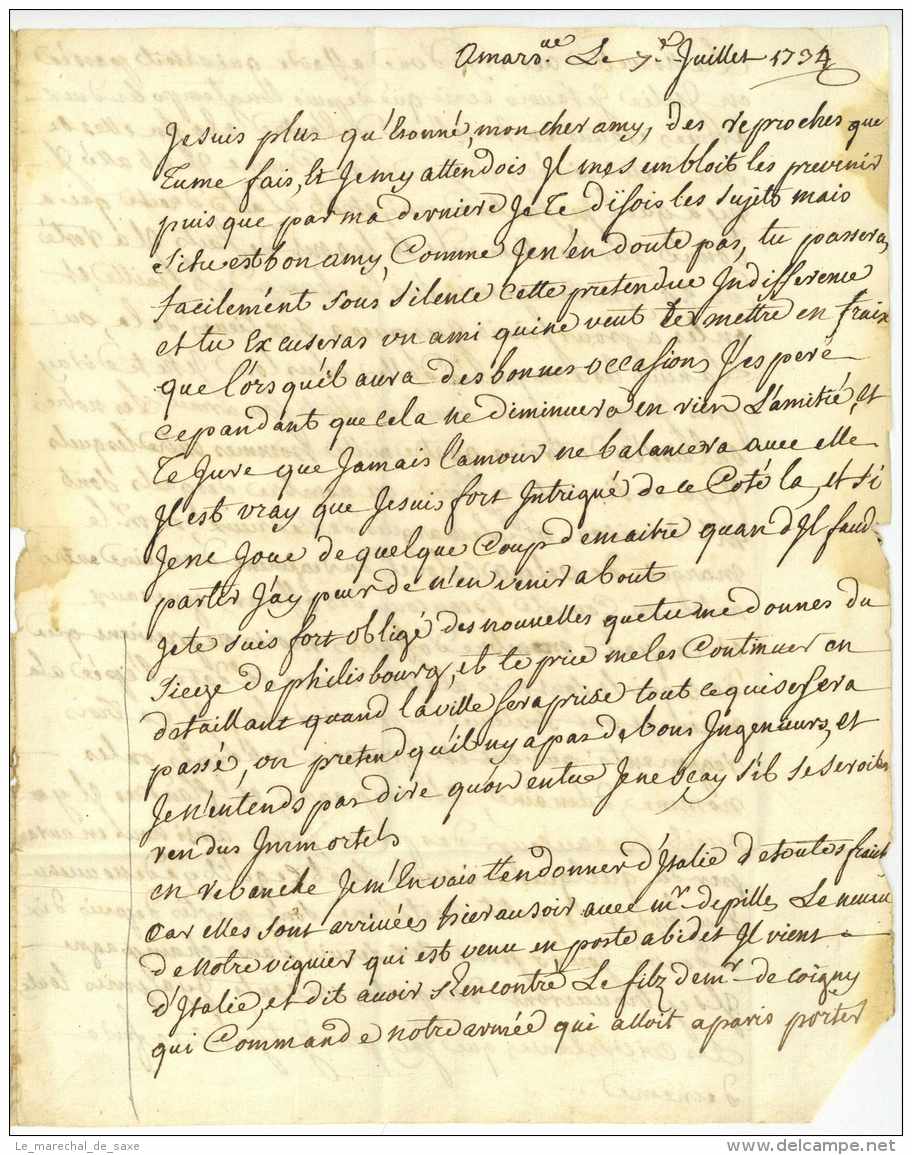 a Mars.lle Le 7.e Juillet 1734
Je suis plus qu'Etonné, mon cher amy, des reproches que
Tu me fais, Et Je my attendois Il me sembloit les prevenir
puis que par ma derniere Je Te disois les sujets mais
si tu est bon amy, Comme Je n'en doute pas, tu passeras
facilement sous silence cette pretendue Indifference
et tu Excuseras un ami qui ne veut te mettre en fraix
que l'orsqu'il aura des bonnes occasions J'esperé
cepandant que cela ne diminuera en rien L'amitié, et
Te Jure que Jamais l'amour ne balancera avec elle
Il est vray que Je suis fort Intrigué de ce Coté la, et si
Je ne Joue de quelque Coup de maitre quand Il faud
partir J'ay peur de n'en venir about
Je te suis fort obligé des nouvelles que tu me donnes du
siege de philisbourg, et te prie me les Continuer en
detaillant quand la ville sera prise tout ce qui se sera
passé, on pretend qu'il ny a pas de bons Ingenieurs, et
Je n'entends pas dire qu'on en tue Je ne scay s'il se seroit
rendus Immortels
en revanche Je m'En vais t'en donner d'Italie de toutes fraich
Car elles sont arrivées hier au soir avec mr. de pilles Le neveu
de notre viguier qui est venu en poste a bidet Il vient
d'Italie, et dit avoir Rencontré Le filz de mr. de coigny
qui Commande notre armée qui alloit a paris porter
Le_marechal_de_saxe
delcampe.net